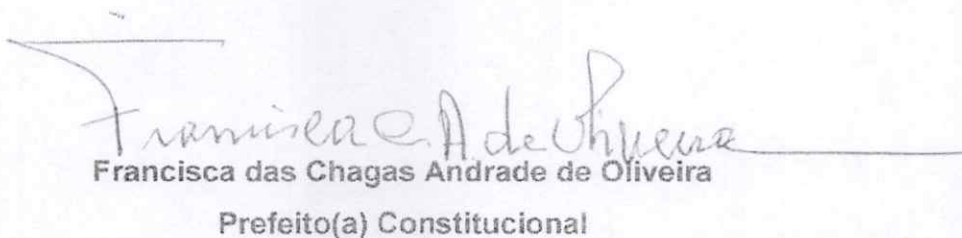 Francisca C. A. de Oliveira
Francisca das Chagas Andrade de Oliveira
Prefeito(a) Constitucional